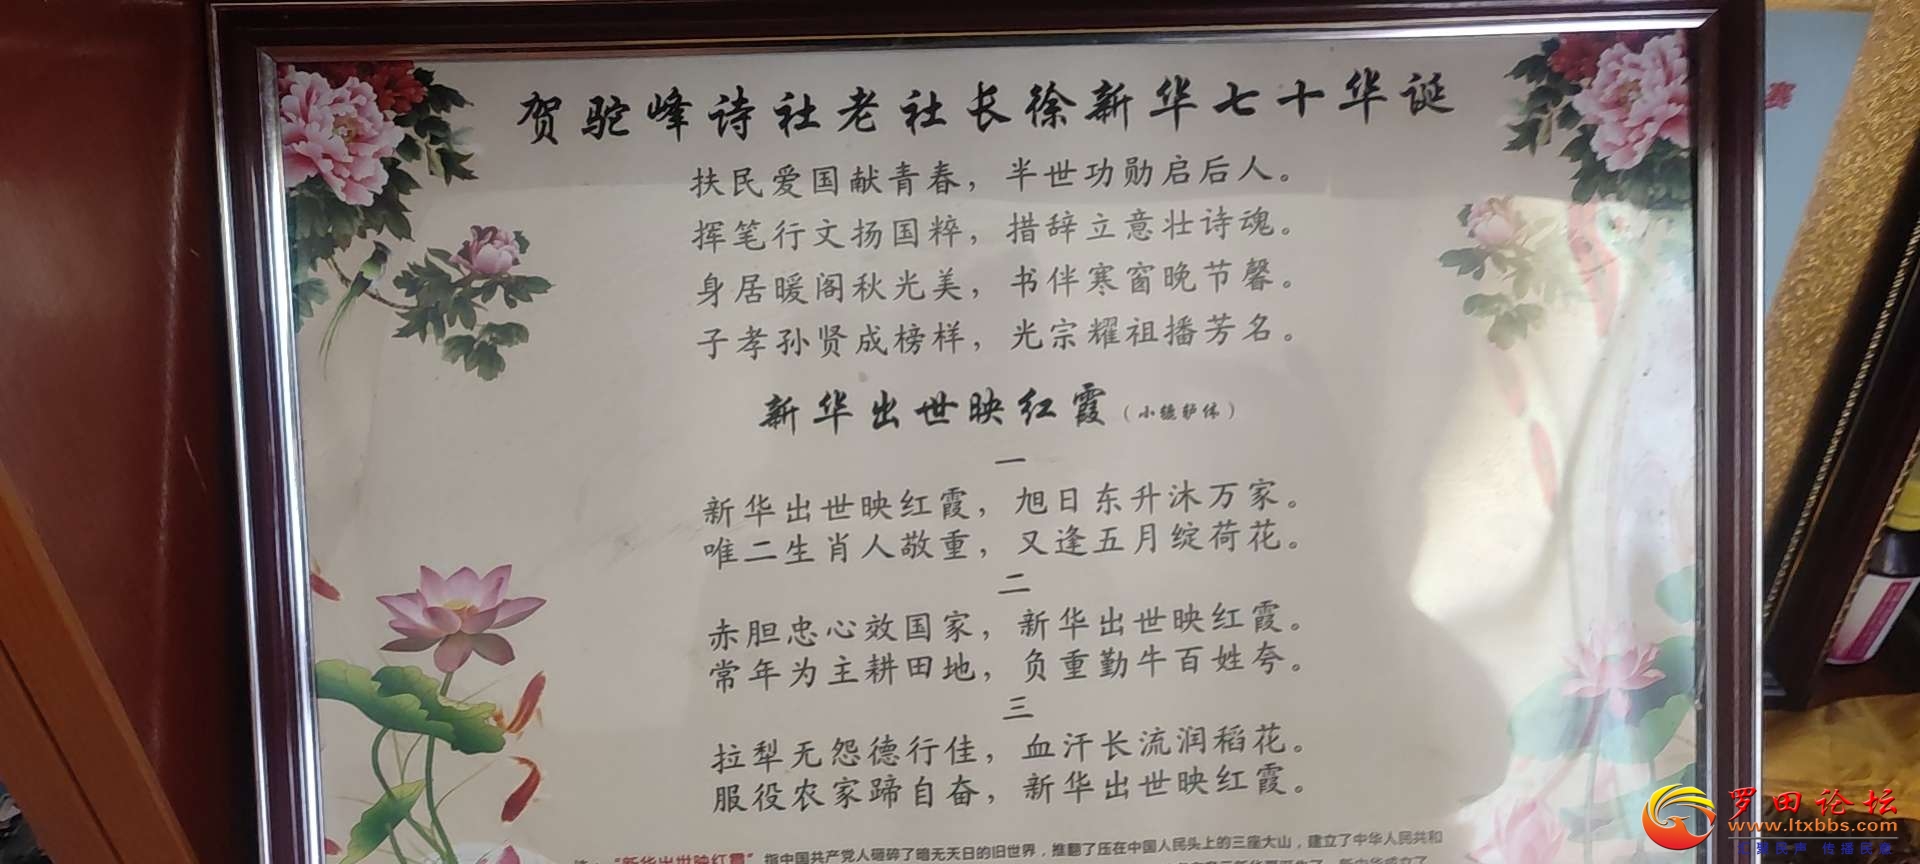 贺驼峰诗社老社长徐新华七十华诞
扶民爱国献青春，半世功勋启后人。
挥笔行文扬国粹，措辞立意壮诗魂。
身居暖阁秋光美，书伴寒窗晚节馨。
子孝孙贤成榜样，光宗耀祖播芳名。
新华出世映红霞（小辘轳体）
一
新华出世映红霞，旭日东升沐万家。
唯二生肖人敬重，又逢五月绽荷花。
二
赤胆忠心效国家，新华出世映红霞。
常年为主耕田地，负重勤牛百姓夸。
三
拉犁无怨德行佳，血汗长流润稻花。
服役农家蹄自奋，新华出世映红霞。
"新华出世映红霞"指中国共产党人砸碎了暗无天日的旧世界，推翻了压在中国人民头上的三座大山，建立了中华人民共和
罗田论坛
www.ltxbbs.com